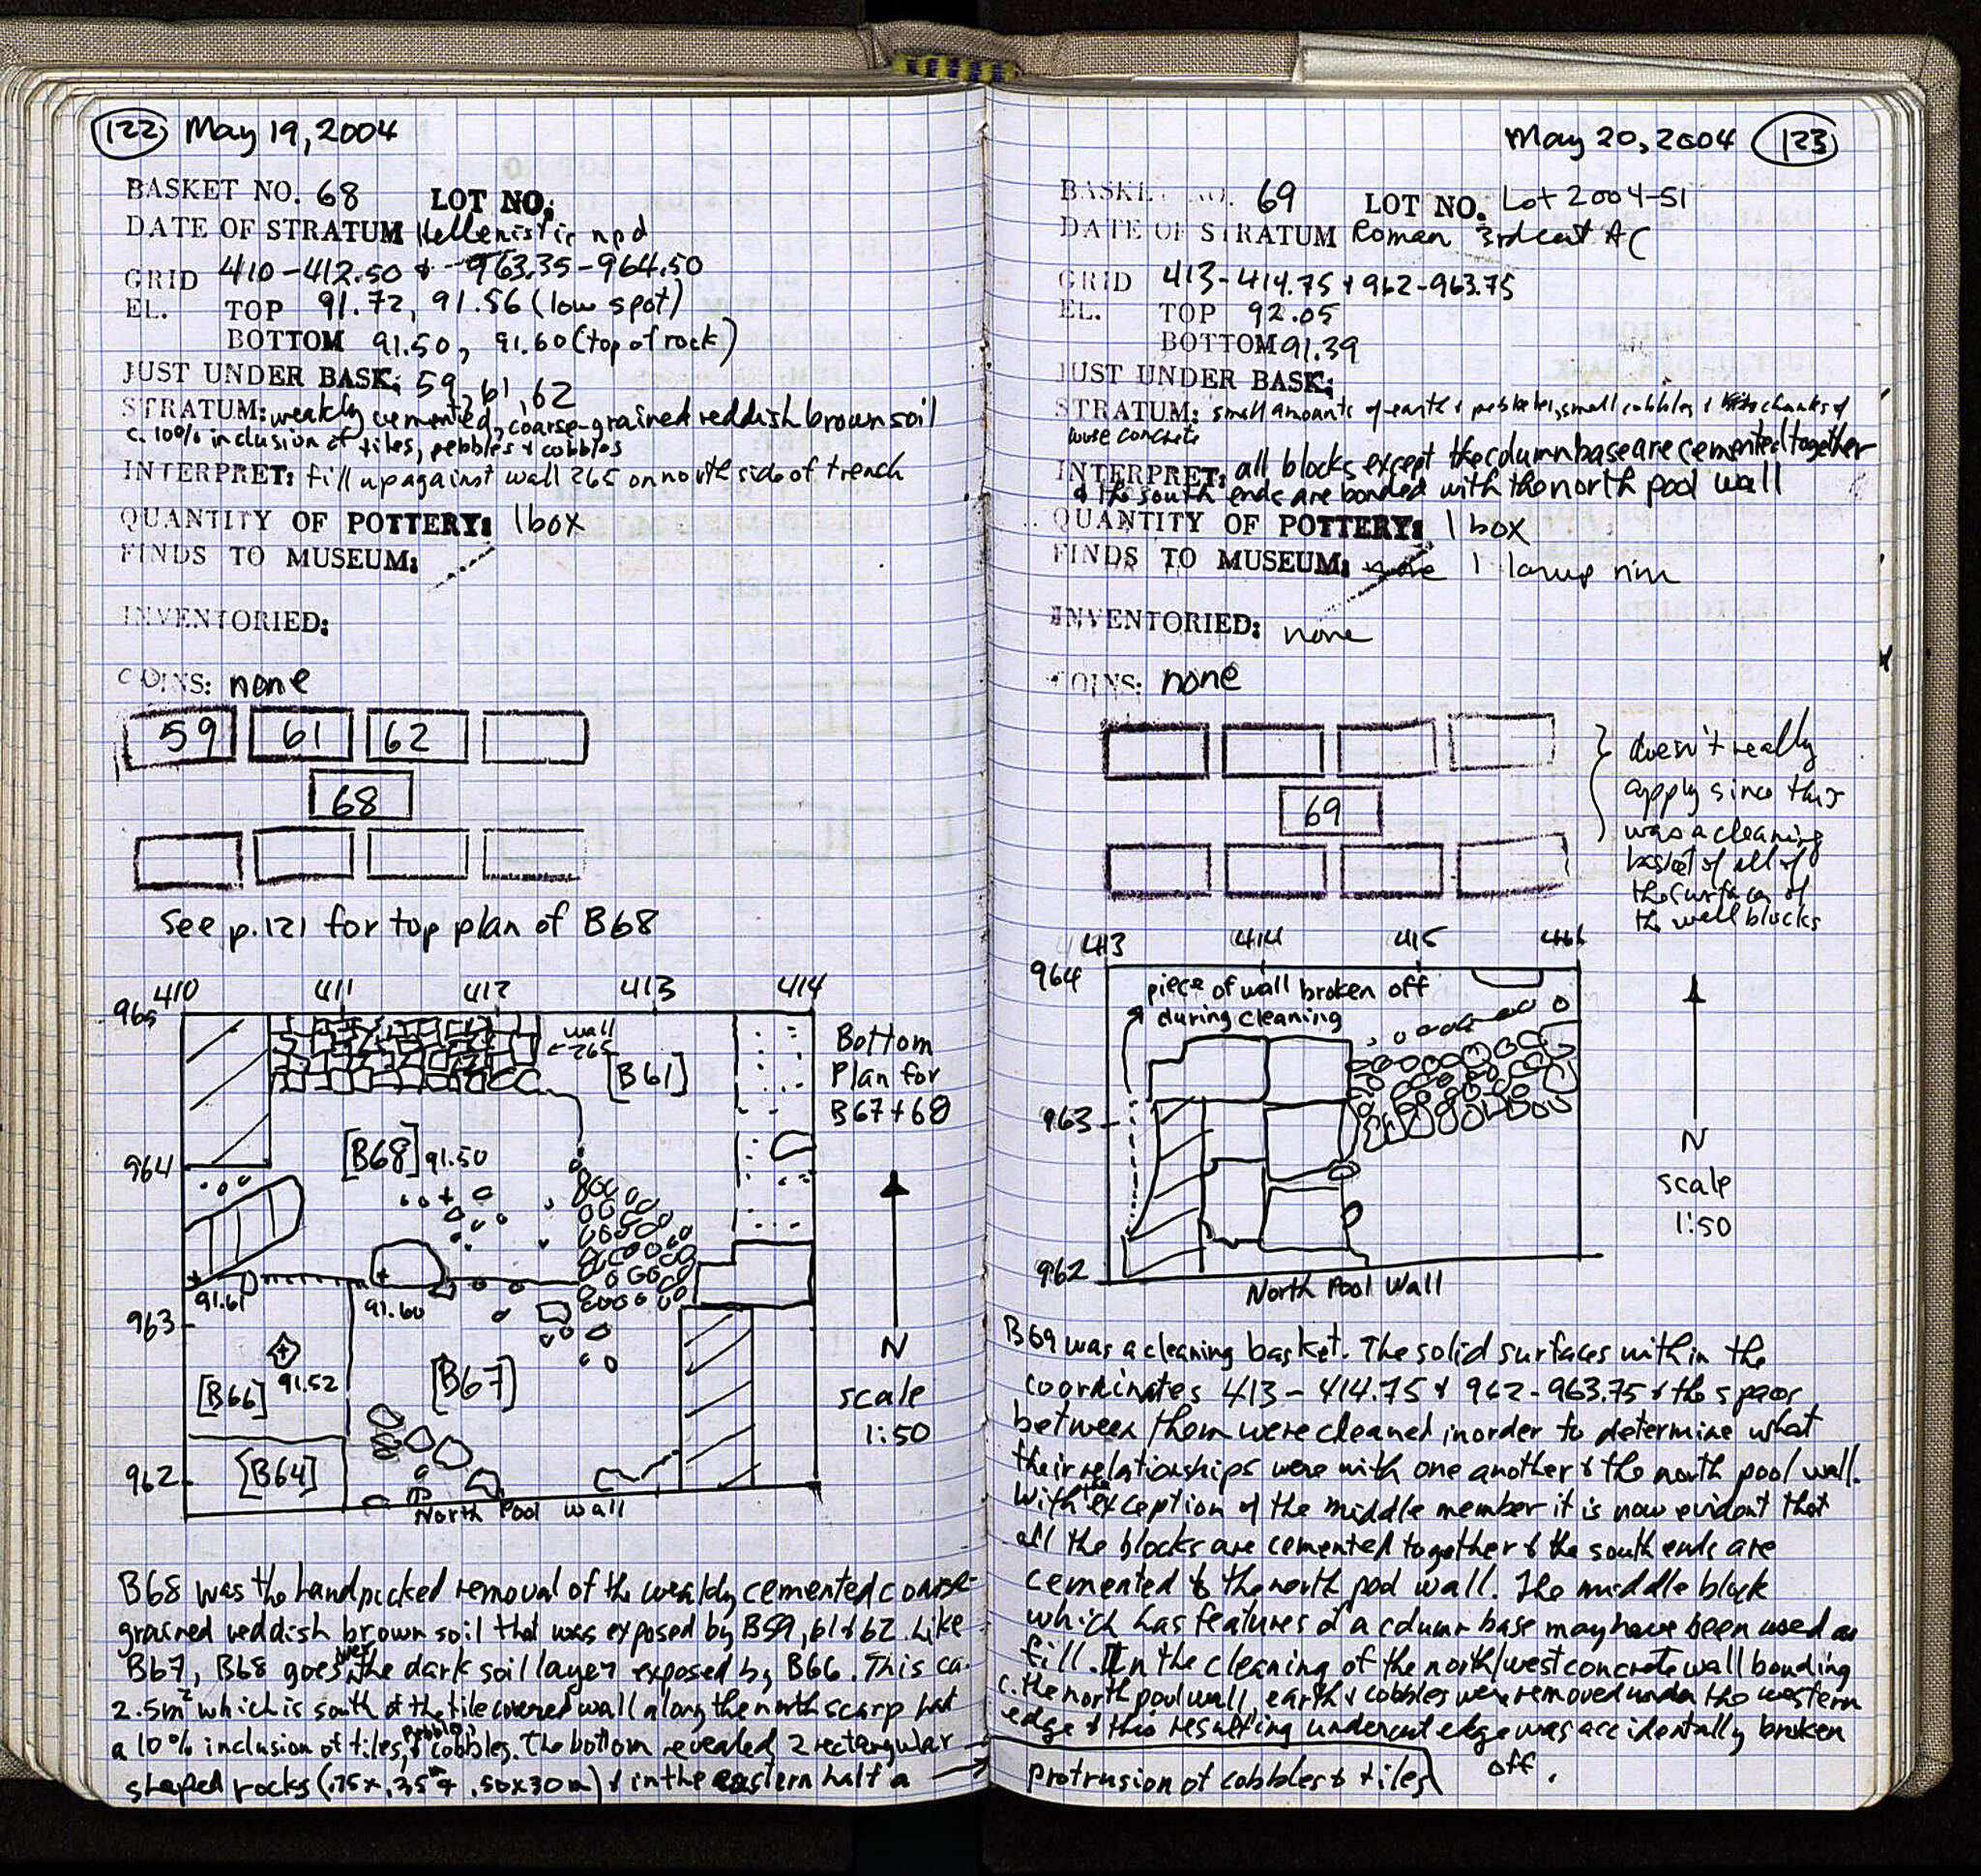 122 May 19, 2004
BASKET NO. 68 LOT NO.
DATE OF STRATUM Hellenistic npd
GRID 410-412.50 & 963.35-964.50
EL. TOP 91.72, 91.56 (low spot)
BOTTOM 91.50, 91.60 (top of rock)
JUST UNDER BASK: 59, 61, 62
STRATUM: weakly cemented, coarse-grained reddish brown soil
c. 10% inclusion of tiles, pebbles & cobbles
INTERPRET: fill up against wall 265 on north side of trench
QUANTITY OF POTTERY: 1 box
FINDS TO MUSEUM:
INVENTORIED:
COINS: none
59 61 62
68
See p. 121 for top plan of B68
410 411 412 413 414
965
wall
265
[B61]
Bottom
Plan for
B67 + 68
964
[B68] 91.50
91.61
91.60
963
N
[B66] 91.52
[B67]
scale
1:50
962
[B64]
North Pool Wall
B68 was the handpicked removal of the weakly cemented coarse-
grained reddish brown soil that was exposed by B59, 61 & 62. Like
B67, B68 goes over the dark soil layer exposed by B66. This ca.
2.5m² which is south of the tile covered wall along the north scarp had
a 10% inclusion of tiles, pebbles & cobbles. The bottom revealed 2 rectangular
shaped rocks (.75 x .35m & .50 x 30 m) & in the eastern half a →
May 20, 2004 123
BASKET NO. 69 LOT NO. Lot 2004-51
DATE OF STRATUM Roman 3rd cent AC
GRID 413-414.75 & 962-963.75
EL. TOP 92.05
BOTTOM 91.39
JUST UNDER BASK:
STRATUM: small amounts of earth & pebbles, small cobbles & chunks of
loose concrete
INTERPRET: all blocks except the column base are cemented together
& the south ends are bonded with the north pool wall
QUANTITY OF POTTERY: 1 box
FINDS TO MUSEUM: none 1 lamp rim
INVENTORIED: none
COINS: none
69
doesn't really
apply since this
was a cleaning
basket of all of
the surfaces of
the wall blocks
413 414 415 416
964
piece of wall broken off
during cleaning
963
N
scale
1:50
962
North Pool Wall
B69 was a cleaning basket. The solid surfaces within the
coordinates 413-414.75 & 962-963.75 & the spaces
between them were cleaned in order to determine what
their relationships were with one another & the north pool wall.
With the exception of the middle member it is now evident that
all the blocks are cemented together & the south ends are
cemented to the north pool wall. The middle block
which has features of a column base may have been used as
fill. In the cleaning of the north/west concrete wall bonding
c. the north pool wall, earth & cobbles were removed under the western
edge & this resulting undercut edge was accidentally broken
off.
protrusion of cobbles & tiles